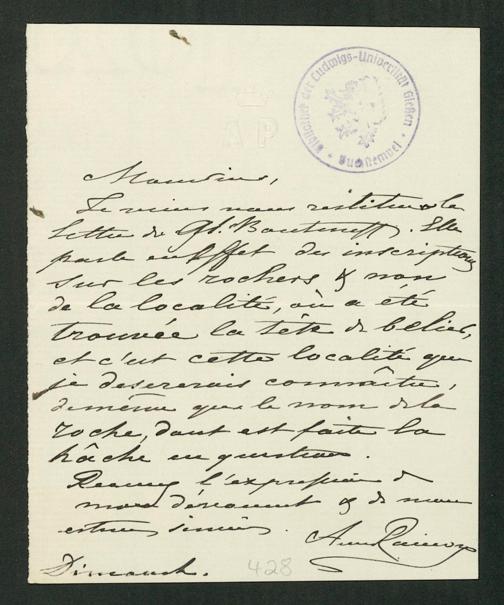 Bibliothek der Ludwigs-Universität Gießen
A P
Monsieur,
Je viens vous restituer la
lettre de Gl. Bouteneff. Elle
parle en effet des inscriptions
sur les rochers & non
de la localité, où a été
trouvée la tête de bélier,
et c'est cette localité que
je desirerais connaître,
de même que le nom de la
roche, dont est faite la
hâche en question.
Recevez l'expression de
mon dévouement & de mon
estime
Dimanch.
428